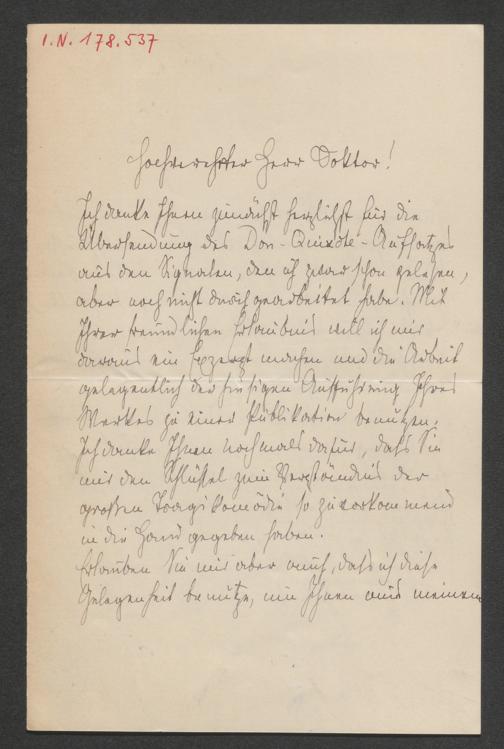 I.N. 178.537
Hochverehrter Herr Doktor!
Ich danke Ihnen zunächst herzlichst für die
Übersendung des Don-Quixote-Aufsatzes
aus den Signalen, den ich zwar schon gelesen,
aber noch nicht durchgearbeitet habe. Mit
Ihrer freundlichen Erlaubnis will ich mir
daraus ein Exzerpt machen und die Arbeit
gelegentlich der hiesigen Aufführung Ihres
Werkes zu einer Publikation benützen.
Ich danke Ihnen nochmals dafür, daß Sie
mir den Schlüssel zum Verständnis der
großen Tragikomödie so zuvorkommend
in die Hand gegeben haben.
Erlauben Sie mir aber auch, daß ich diese
Gelegenheit benütze, um Ihnen aus meinem